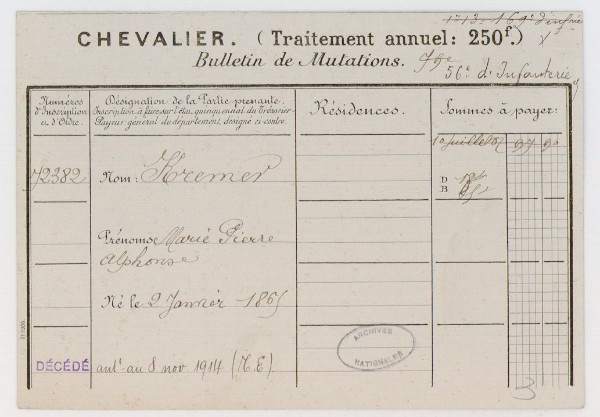 169e d'infrie
CHEVALIER. (Traitement annuel: 250f.)
Bulletin de Mutations.
56e d'Infanterie
Numéros d'Inscription et d'Ordre.
Désignation de la Partie prenante.
Inscription à faire sur l'état quinquennal du Trésorier-
Payeur général du département, désigné ci-contre.
Résidences.
Sommes à payer:
72382
Nom: Kremer
Prénoms Marie Pierre
Alphonse
Né le 2 Janvier 1865
DÉCÉDÉ antt au 8 nov 1914 (M.E)
10 Juillet
D
B
ARCHIVES
NATIONALES
3